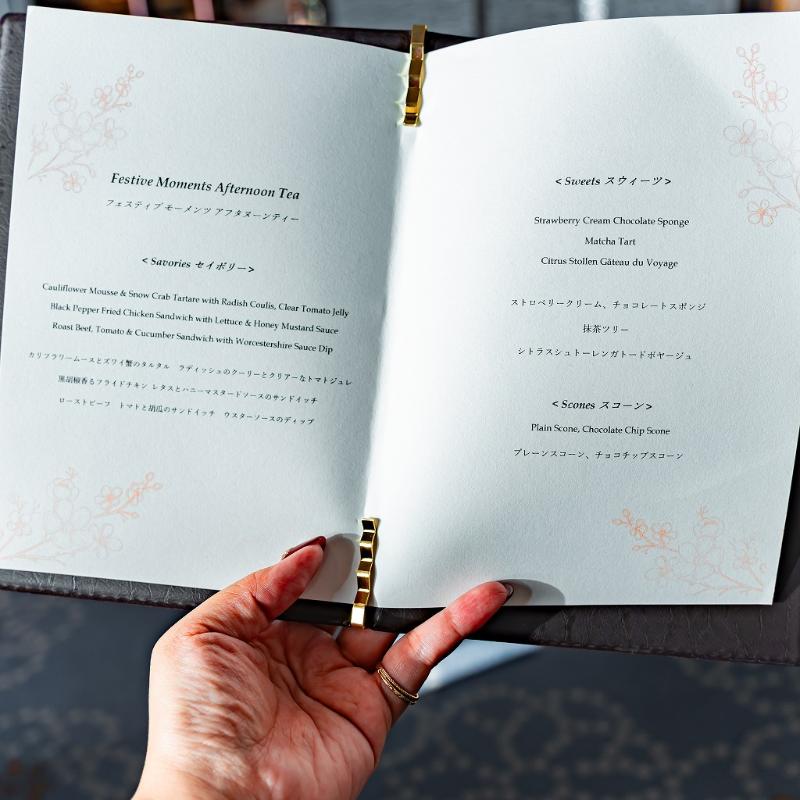 Festive Moments Afternoon Tea
フェスティブ モーメンツ アフタヌーンティー
< Savories セイボリー>
Cauliflower Mousse & Snow Crab Tartare with Radish Coulis, Clear Tomato Jelly
Black Pepper Fried Chicken Sandwich with Lettuce & Honey Mustard Sauce
Roast Beef, Tomato & Cucumber Sandwich with Worcestershire Sauce Dip
カリフラワームースとズワイ蟹のタルタル ラディッシュのクーリーとクリアーなトマトジュレ
黒胡椒香るフライドチキン レタスとハニーマスタードソースのサンドイッチ
ローストビーフ トマトと胡瓜のサンドイッチ ウスターソースのディップ
< Sweets スウィーツ>
Strawberry Cream Chocolate Sponge
Matcha Tart
Citrus Stollen Gâteau du Voyage
ストロベリークリーム、チョコレートスポンジ
抹茶ツリー
シトラスシュトーレンガトードボヤージュ
< Scones スコーン>
Plain Scone, Chocolate Chip Scone
プレーンスコーン、チョコチップスコーン